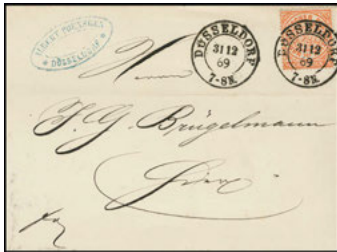 ALBERT POENSGEN
DÜSSELDORF
DÜSSELDORF
31 12
69
7-8N.
DÜSSELDORF
31 12
69
7-8N.
Herrn
F. G. Brügelmann